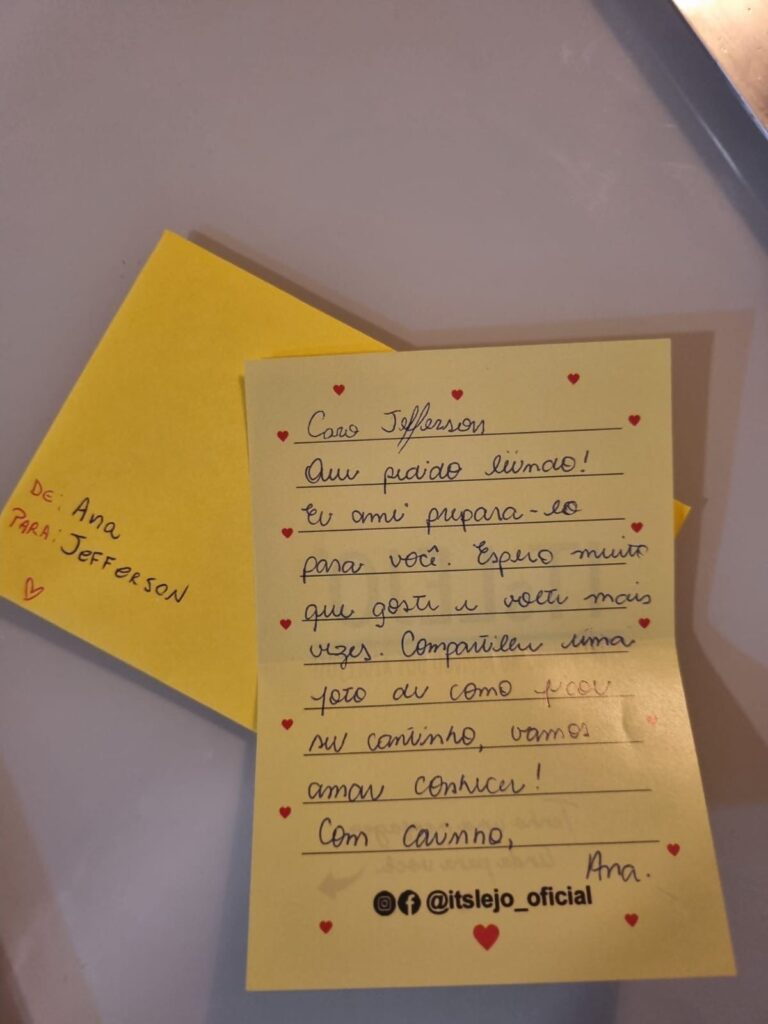 DE: Ana
PARA: JEFFERSON
Caro Jefferson
Que pedido lindo!
Eu amei prepara-lo
para você. Espero muito
que goste e volte mais
vezes. Compartilhe uma
foto de como ficou
seu cantinho, vamos
amar conhecer!
Com carinho,
Ana.
@itslejo_oficial